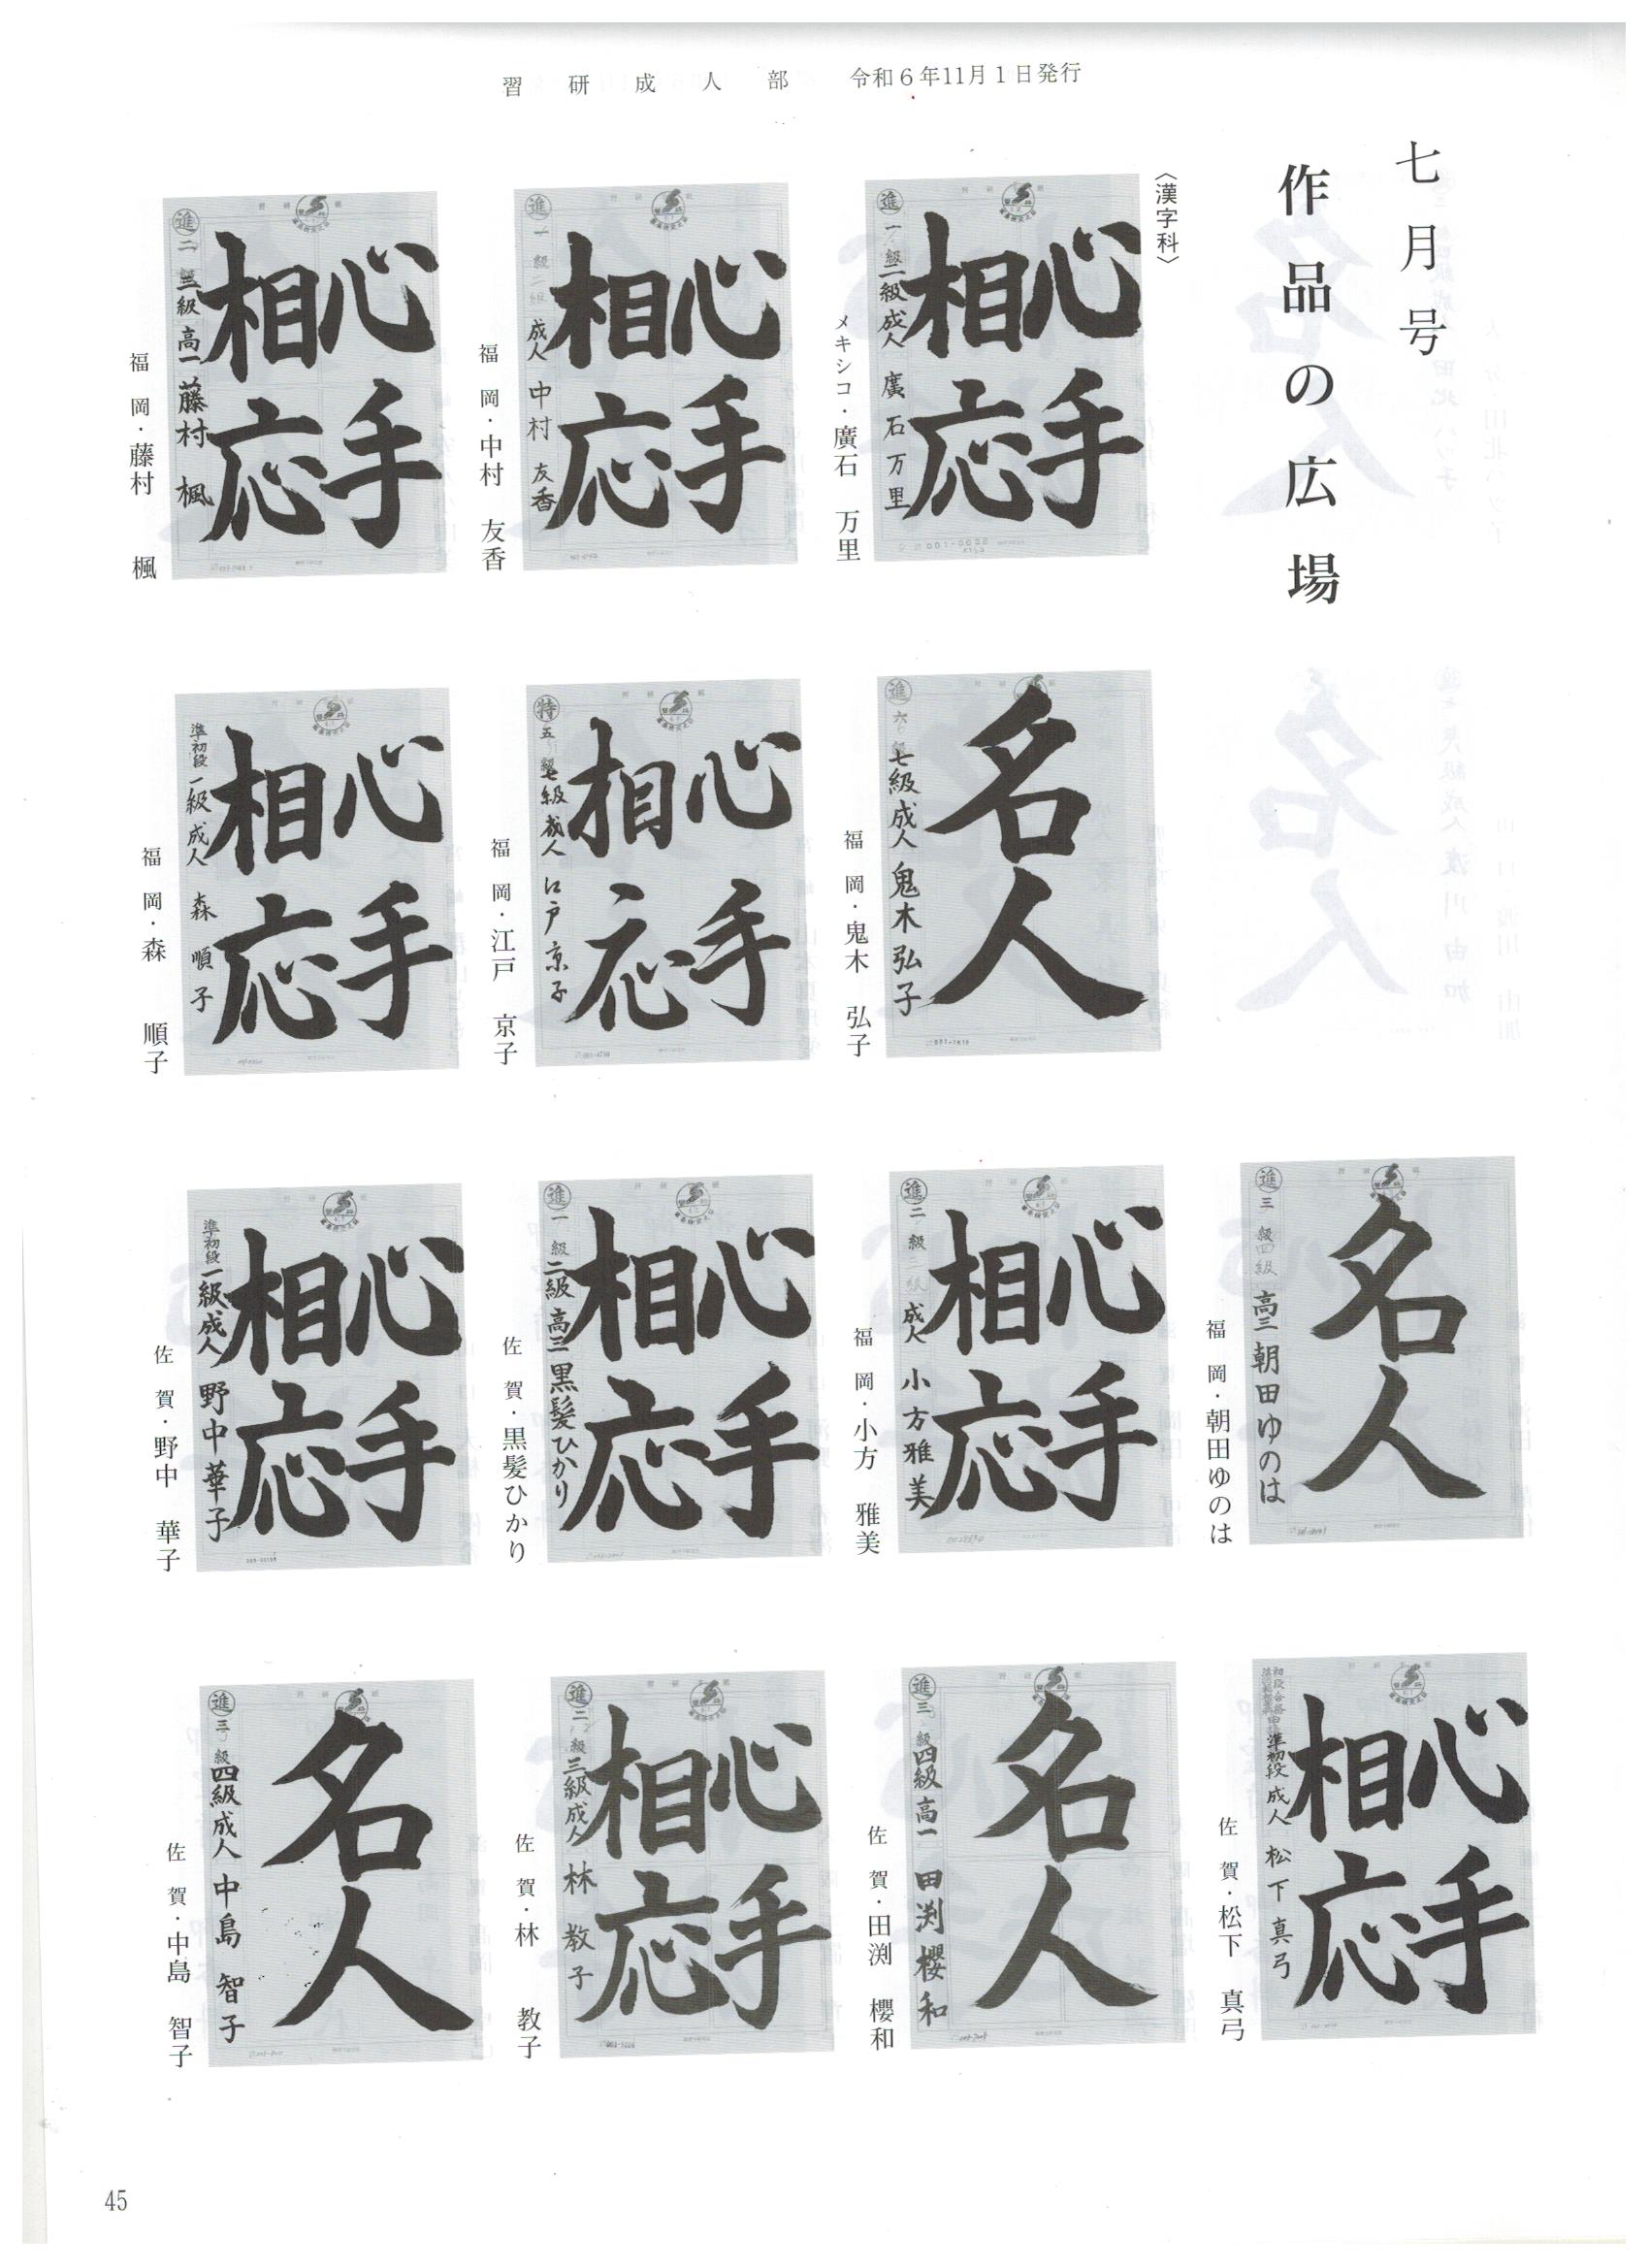 習研成人部　令和６年11月１日発行
七月号
作品の広場
〈漢字科〉
心手
相応
進一級
二級成人 廣石万里
メキシコ・廣石　万里
心手
相応
進一級
二級
成人 中村友香
福　岡・中村　友香
心手
相応
進二級
三級 高一 藤村 楓
福　岡・藤村　楓
名人
進六級
七級成人 鬼木弘子
福　岡・鬼木　弘子
心手
相応
特五級
七級 成人 江戸京子
福　岡・江戸　京子
心手
相応
準初段
一級成人 森 順子
福　岡・森　順子
名人
進三級
四級
高三 朝田ゆのは
福　岡・朝田ゆのは
心手
相応
進二級
三級
成人 小方雅美
福　岡・小方　雅美
心手
相応
進一級
二級 高三 黒髪ひかり
佐　賀・黒髪ひかり
心手
相応
準初段
一級成人 野中華子
佐　賀・野中　華子
心手
相応
準初段 成人 松下真弓
佐　賀・松下　真弓
名人
進三級
四級 高一 田渕櫻和
佐　賀・田渕　櫻和
心手
相応
進二級
三級成人 林 教子
佐　賀・林　教子
名人
進三級
四級成人 中島智子
佐　賀・中島　智子
45